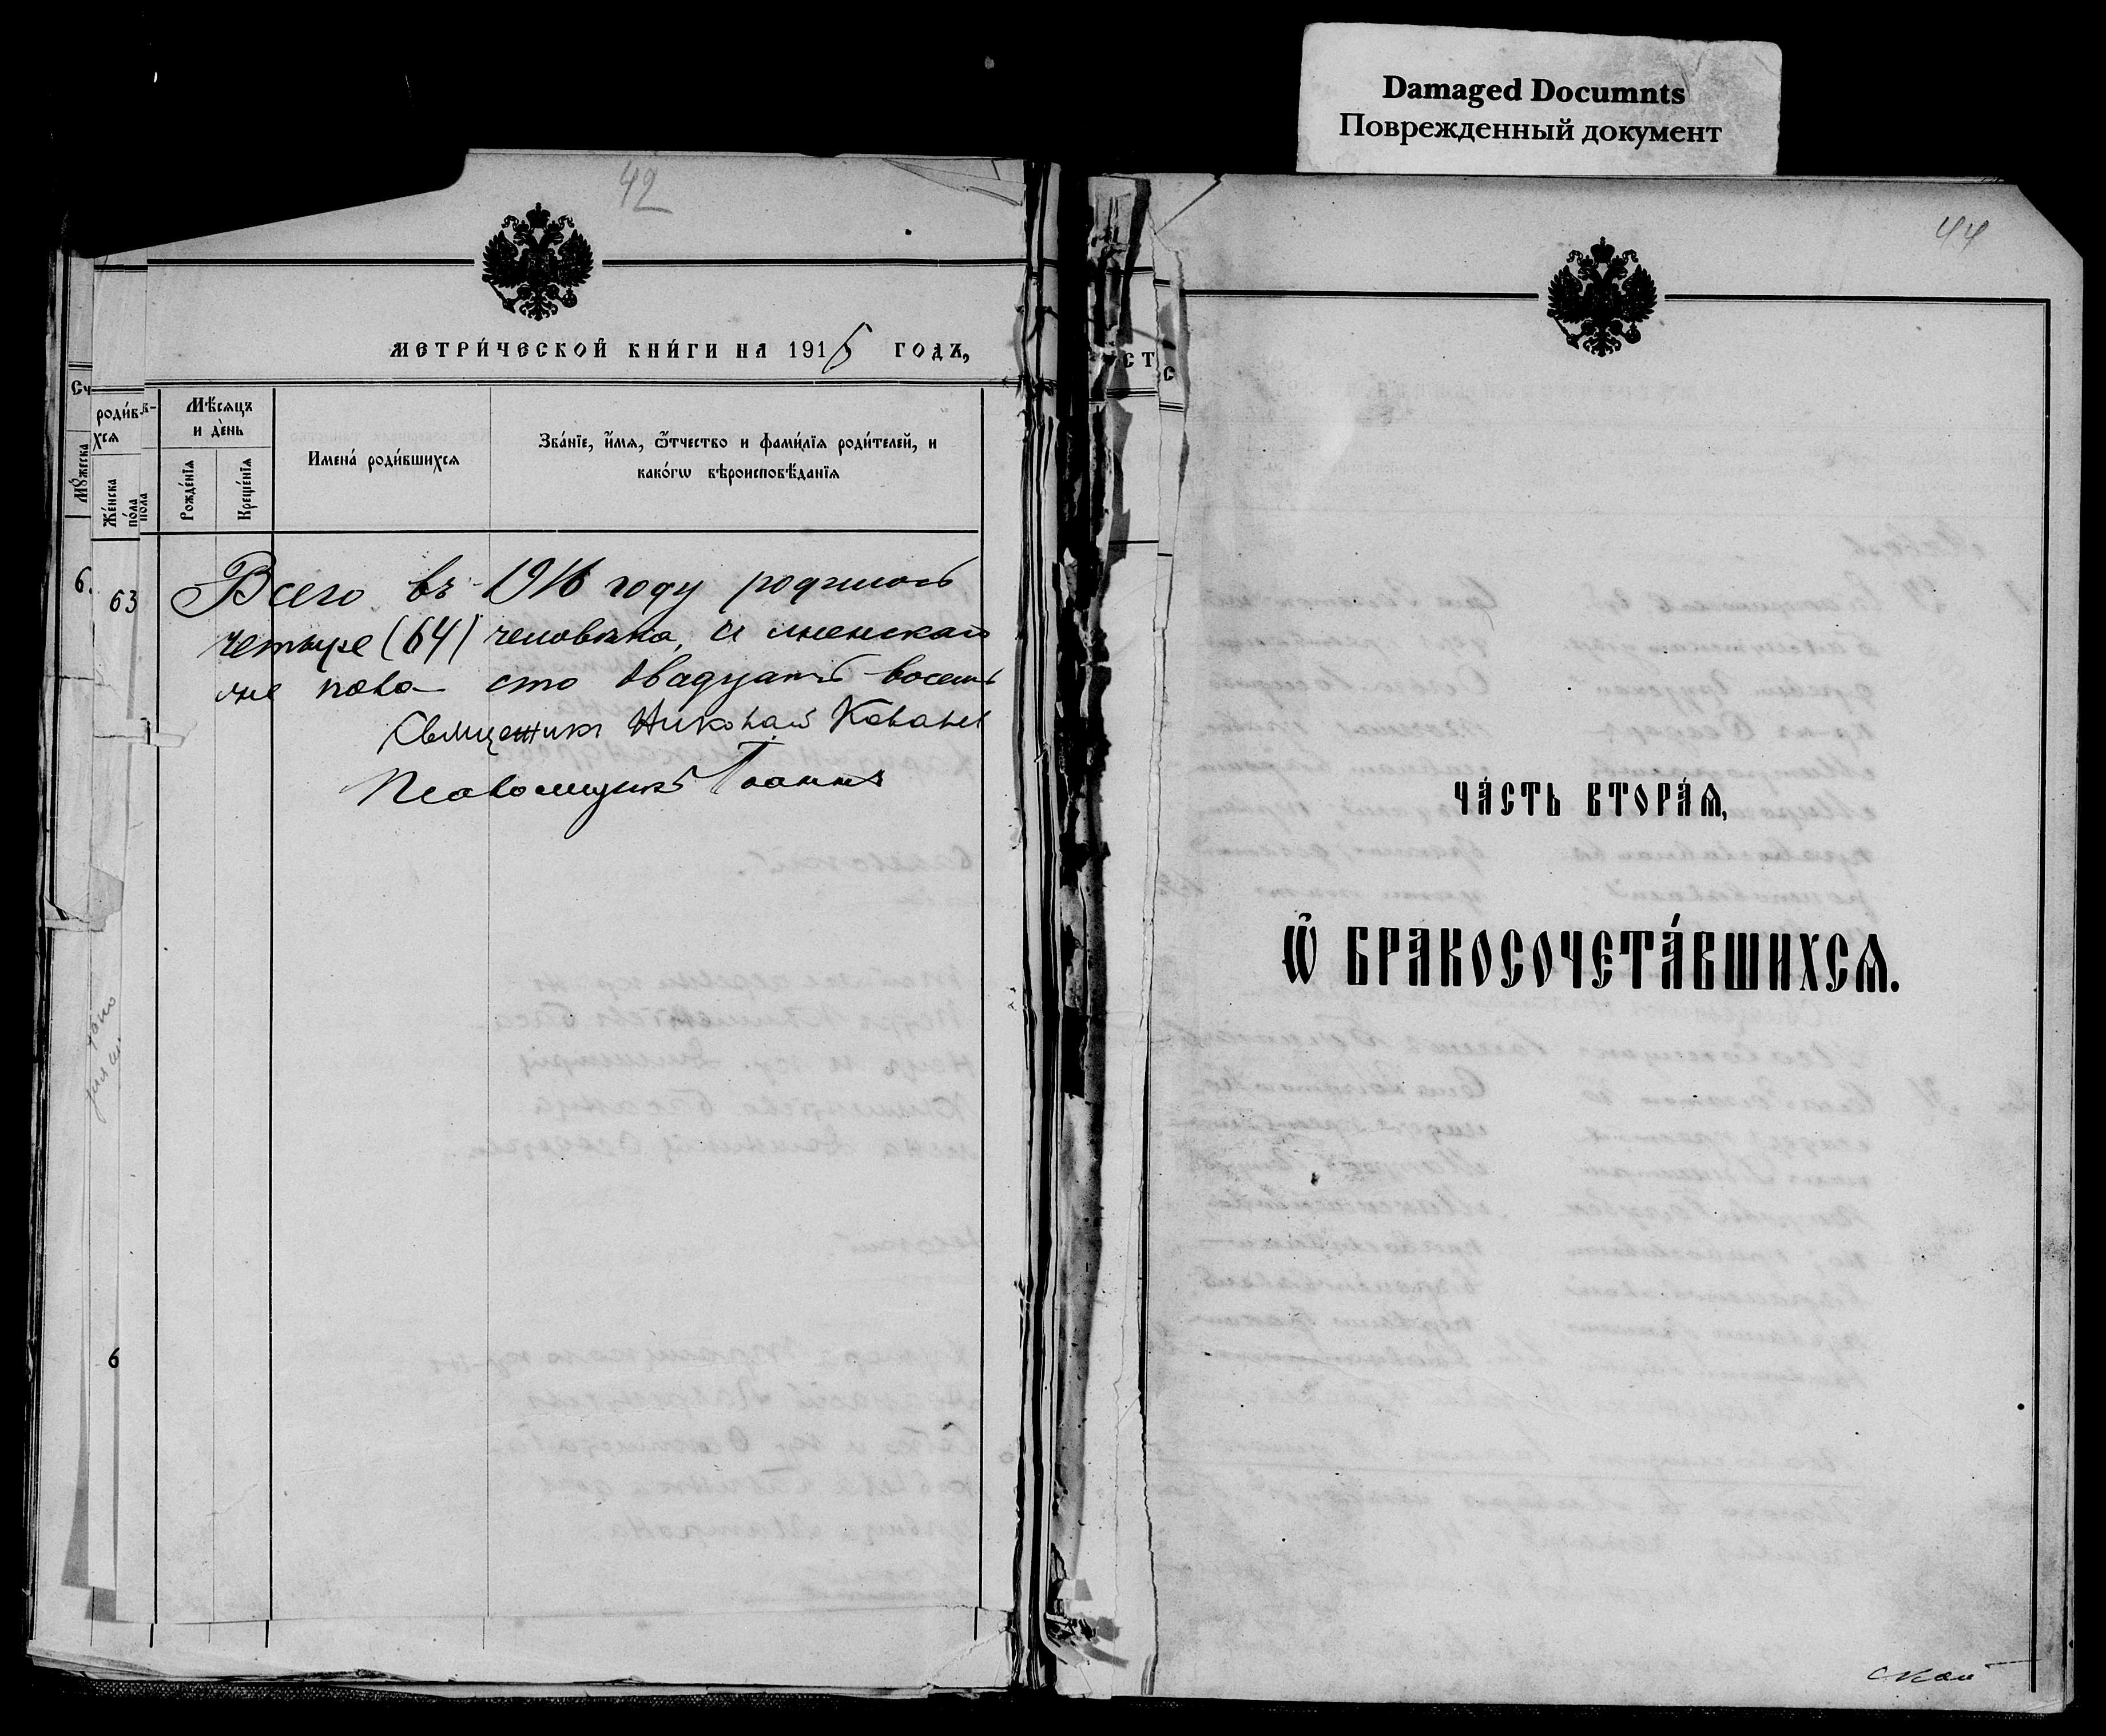 Damaged Documnts
Поврежденный документ
42
МЕТРИ́ЧЕСКОЙ КНИ́ГИ НА 1916 ГОДЪ,
Сч
роди́в
хся
Мꙋ́жеска
Же́нска
по́ла
пола
Мѣ́сяцъ
и де́нь
Рожде́нїѧ
Креще́нїѧ
Имена́ роди́вшихсѧ
Зва́нїе, и҆́мѧ, ѻ҆́тчество и фами́лїѧ роди́телей, и
како́гѡ вѣроисповѣ́данїѧ
6.
63
Всего въ 1916 году родилось
четыре (64) человѣка, и женскаго
же пола сто двадцать восемь
Священникъ Николай Ковалев
Псаломщикъ Іоаннъ
6
СТ
С
44
ЧА́СТЬ ВТОРА́Ѧ,
Ѽ БРАКОСОЧЕТА́ВШИХСѦ.